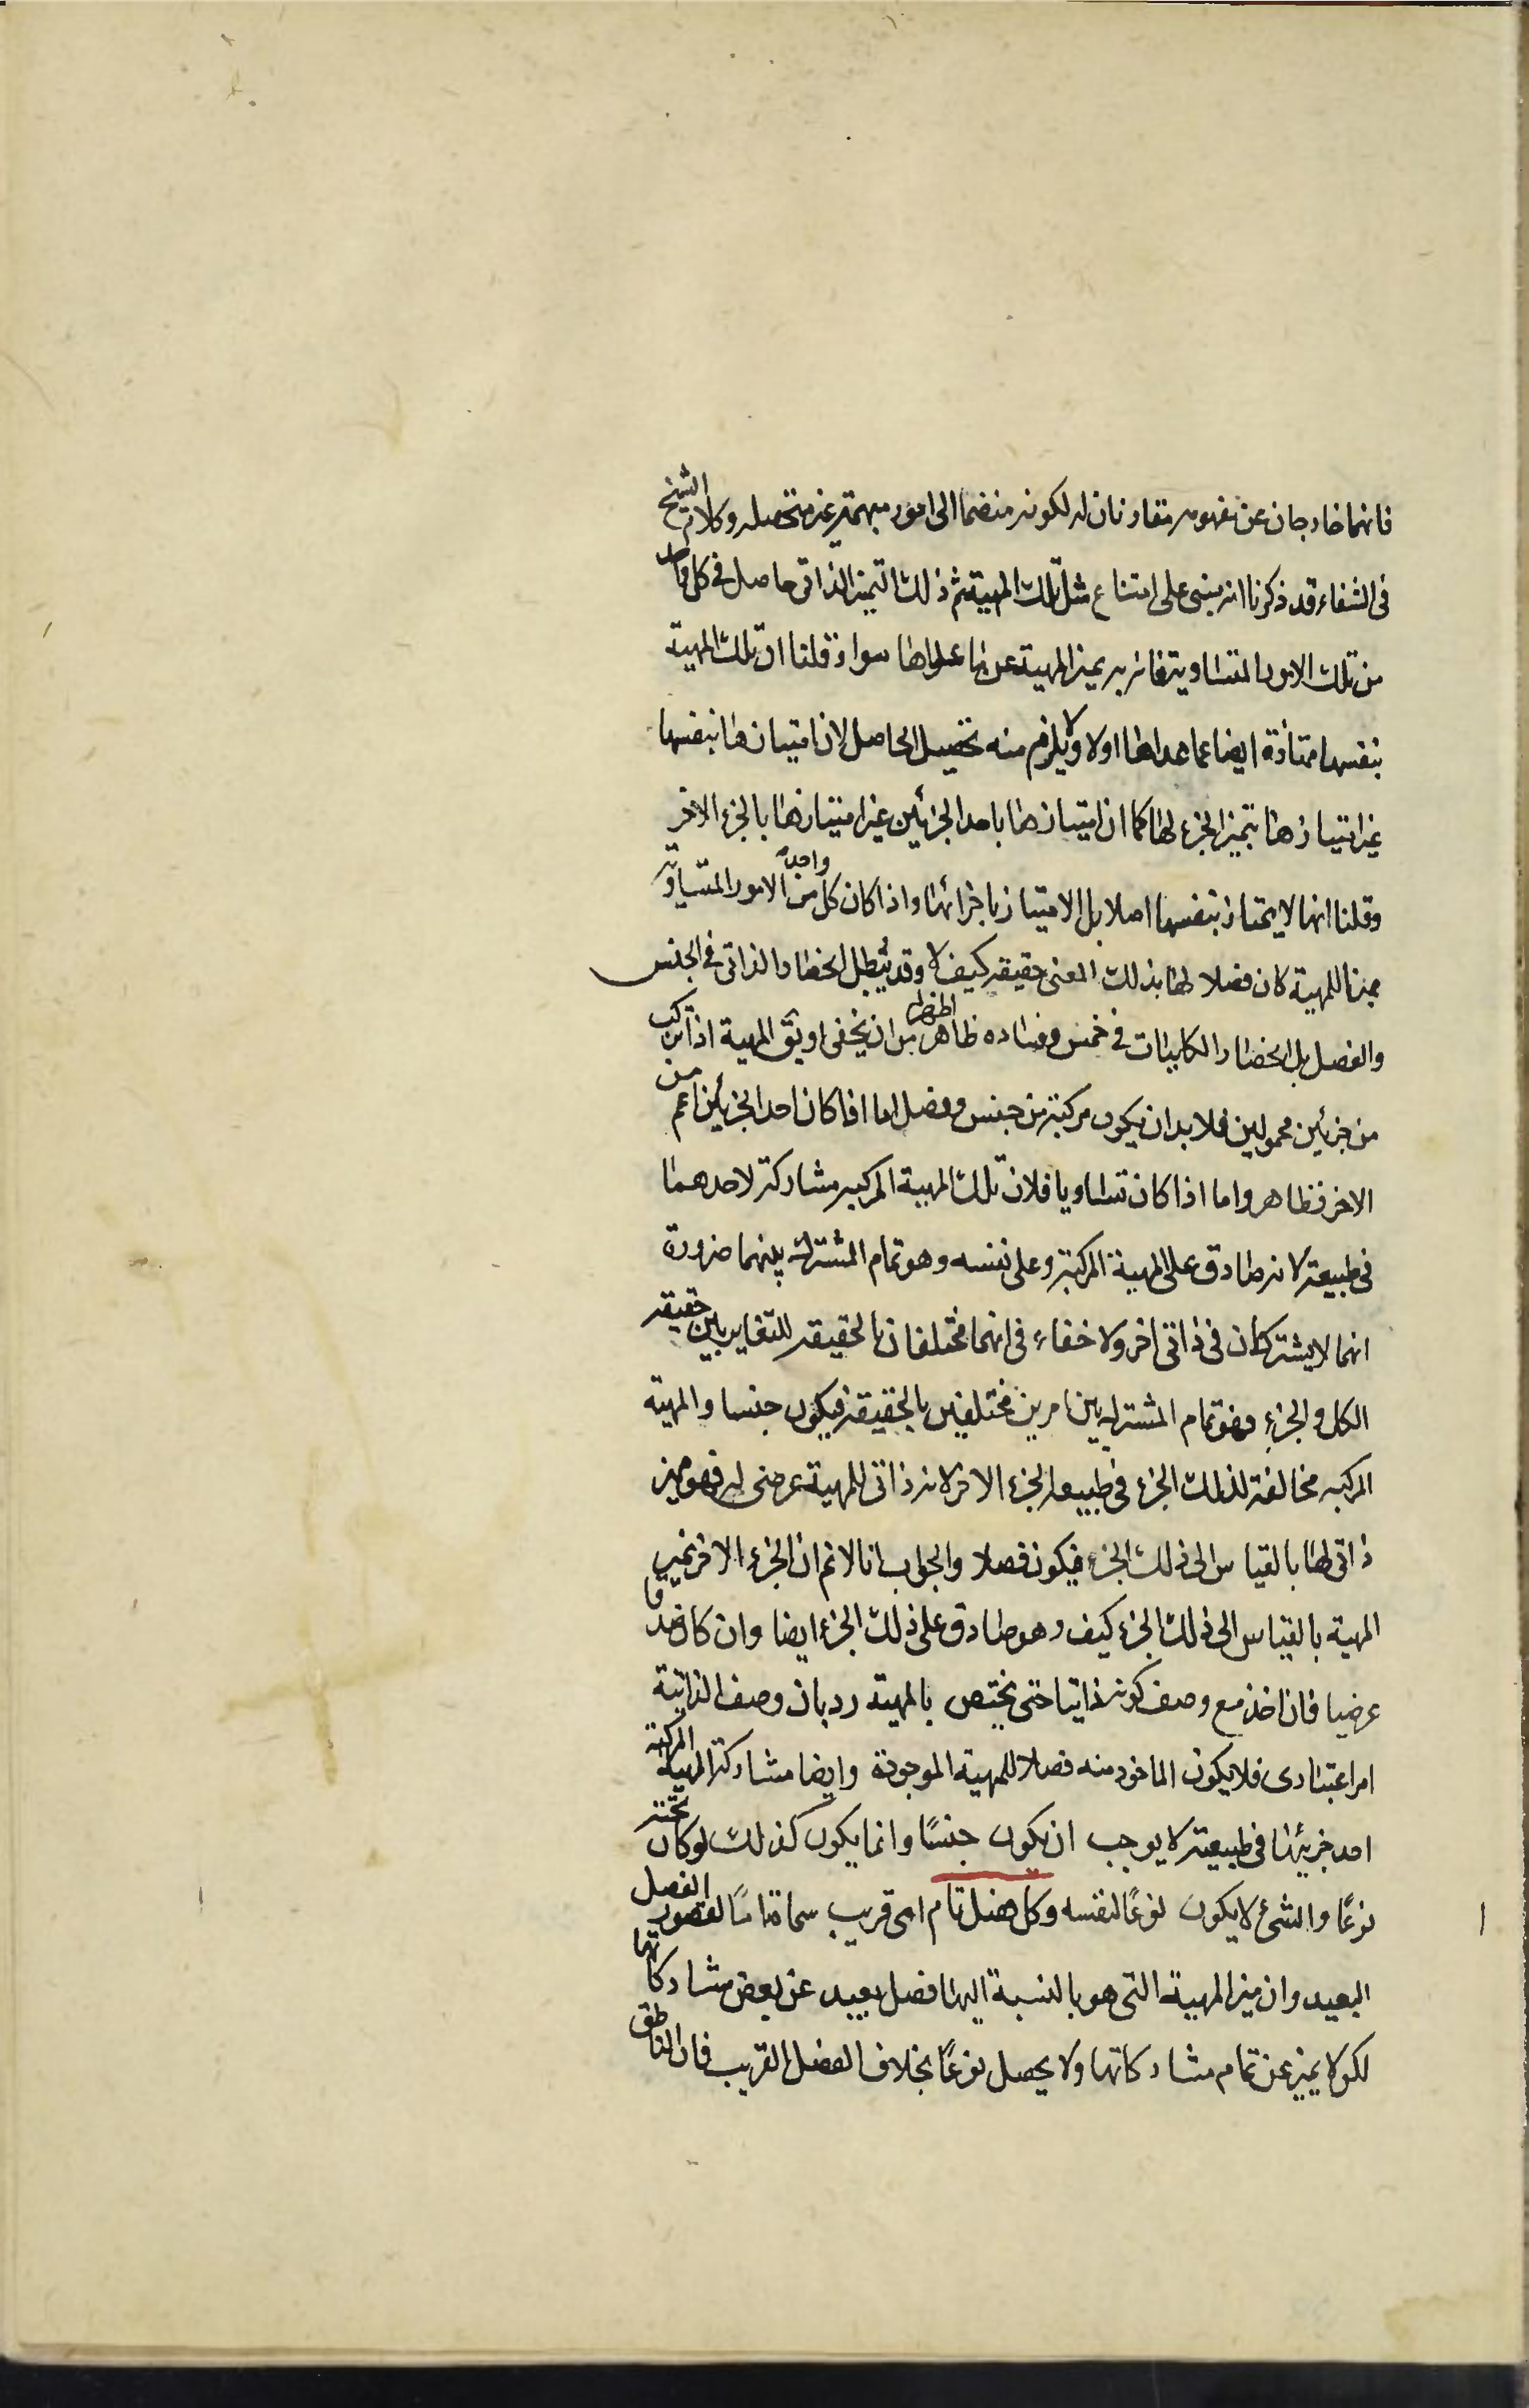 فانهما خارجان عن مفهومه مقارنان له لكونه منضما الى امور مبهمة غير متحصله وكلام الشيخ
فى الشفاء قد ذكرنا انه مبنى على امتناع مثل تلك المهية ثم ذلك التميز الذاتى حاصل فى كل واحد
من تلك الامور المتساوية فانه به يميز المهية عن ما عداها سوا ء قلنا ان تلك المهية
بنفسها ممتازة ايضا عما عداها اولا ولا يلزم منه تحصيل الحاصل لان امتيازها بنفسها
غير امتيازها بتميز الجزء لها كما ان امتيازها باحد الجزئين غير امتيازها بالجزء الاخر
وقلنا انها لا يمتاز بنفسها اصلا بل الامتياز باجزائها واذا كان كل واحد من الامور المتساوية
مميزا للمهية كان فصلا لها بذلك المعنى حقيقه كيف لا وقد يبطل انحصار الذاتى فى الجنس
والفصل بل انحصار الكليات فى خمس وفساده ظاهر اظهر من ان يخفى او يق المهية اذا تركب
من جزئين محمولين فلا بد ان يكون مركبة من جنس وفصل اما اذا كان احد الجزئين اعم من
الاخر فظاهر واما اذا كان تساويا فلان تلك المهية المركبه مشاركة لاحدهما
فى طبيعته لانه صادق على المهية المركبة وعلى نفسه وهو تمام المشترك بينهما ضرورة
انهما لا يشتركان فى ذاتى اخر ولا خفاء فى انهما مختلفان بالحقيقه للتغاير بين حقيقه
الكل والجزء فهو تمام المشترك بين امرين مختلفين بالحقيقه فيكون جنسا والمهية
المركبه مخالفة لذلك الجزء فى طبيعه الجزء الاخر لانه ذاتى للمهية عرضى له فهو مميز
ذاتى لها بالقياس الى ذلك الجزء فيكون فصلا والجواب انا لا نم ان الجزء الاخر تميز
المهية بالقياس الى ذلك الجزء كيف وهو صادق على ذلك الجزء ايضا وان كان صدقا
عرضيا فان اخذ مع وصف كونه ذاتيا حتى يختص بالمهية رد بان وصف الذاتية
امر اعتبارى فلا يكون الماخوذ منه فصلا للمهية الموجودة وايضا مشاركة المهية المركبة
احد جزيئها فى طبيعته لا يوجب ان يكون جنسًا وانما يكون كذلك لو كان تحته
نوعًا والشئ لا يكون نوعًا لنفسه وكل فصل تام اى قريب سماه تامًا لقصور الفصل
البعيد وان ميز المهية التى هو بالنسبة اليها فصل بعيد عن بعض مشاركاتها
لكن لا يميز عن تمام مشاركاتها ولا يحصل نوعًا بخلاف الفصل القريب فان الناطق